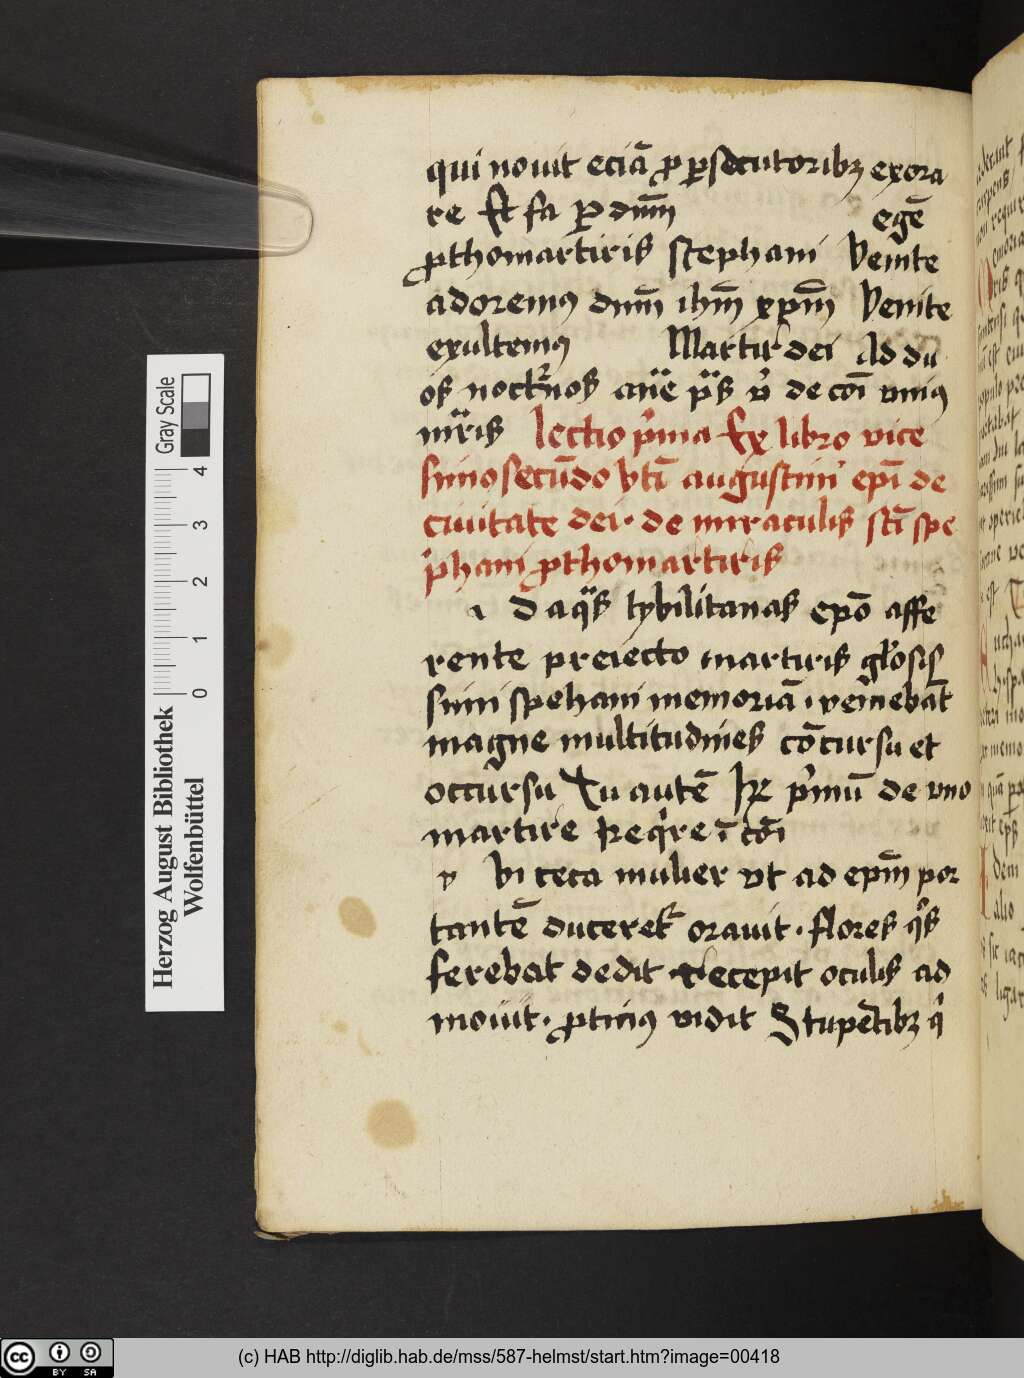 qui nouit eciā ꝓ ꝑsecutoribꝫ exora
re Et fa ꝑ dnm̄ egē
ꝓthomartiris stephani Venite
adoremꝰ dnm̄ ihm̄ xpm̄ Venite
exultemꝰ Martir dei Ad du
os nocturnos añe p̄s v̉ de cōi vniꝰ
mr̄is lectio pͥma Ex libro vice
simosecūdo btī augustini epī de
ciuitate dei · de miraculis sctī spe
phani ꝓthomartiris
a d aqͣs tybilitanas epō affe
rente preiecto martiris glosis
simi spehani memoriā · veniebāt
magne multitudines cōcursu et
occursu Tu autē pͥmū de vno
martire Reqͥre ī cōi
v Vbi ceca mulier vt ad epm̄ por
tantē ducereť orauit · flores qͦs
ferebat dedit recepit oculis ad
mouit · ꝓtinꝰ vidit Stupētibꝫ qͥ
Gray Scale
4
3
2
1
0
Herzog August Bibliothek
Wolfenbüttel
cc BY SA
(c) HAB http://diglib.hab.de/mss/587-helmst/start.htm?image=00418